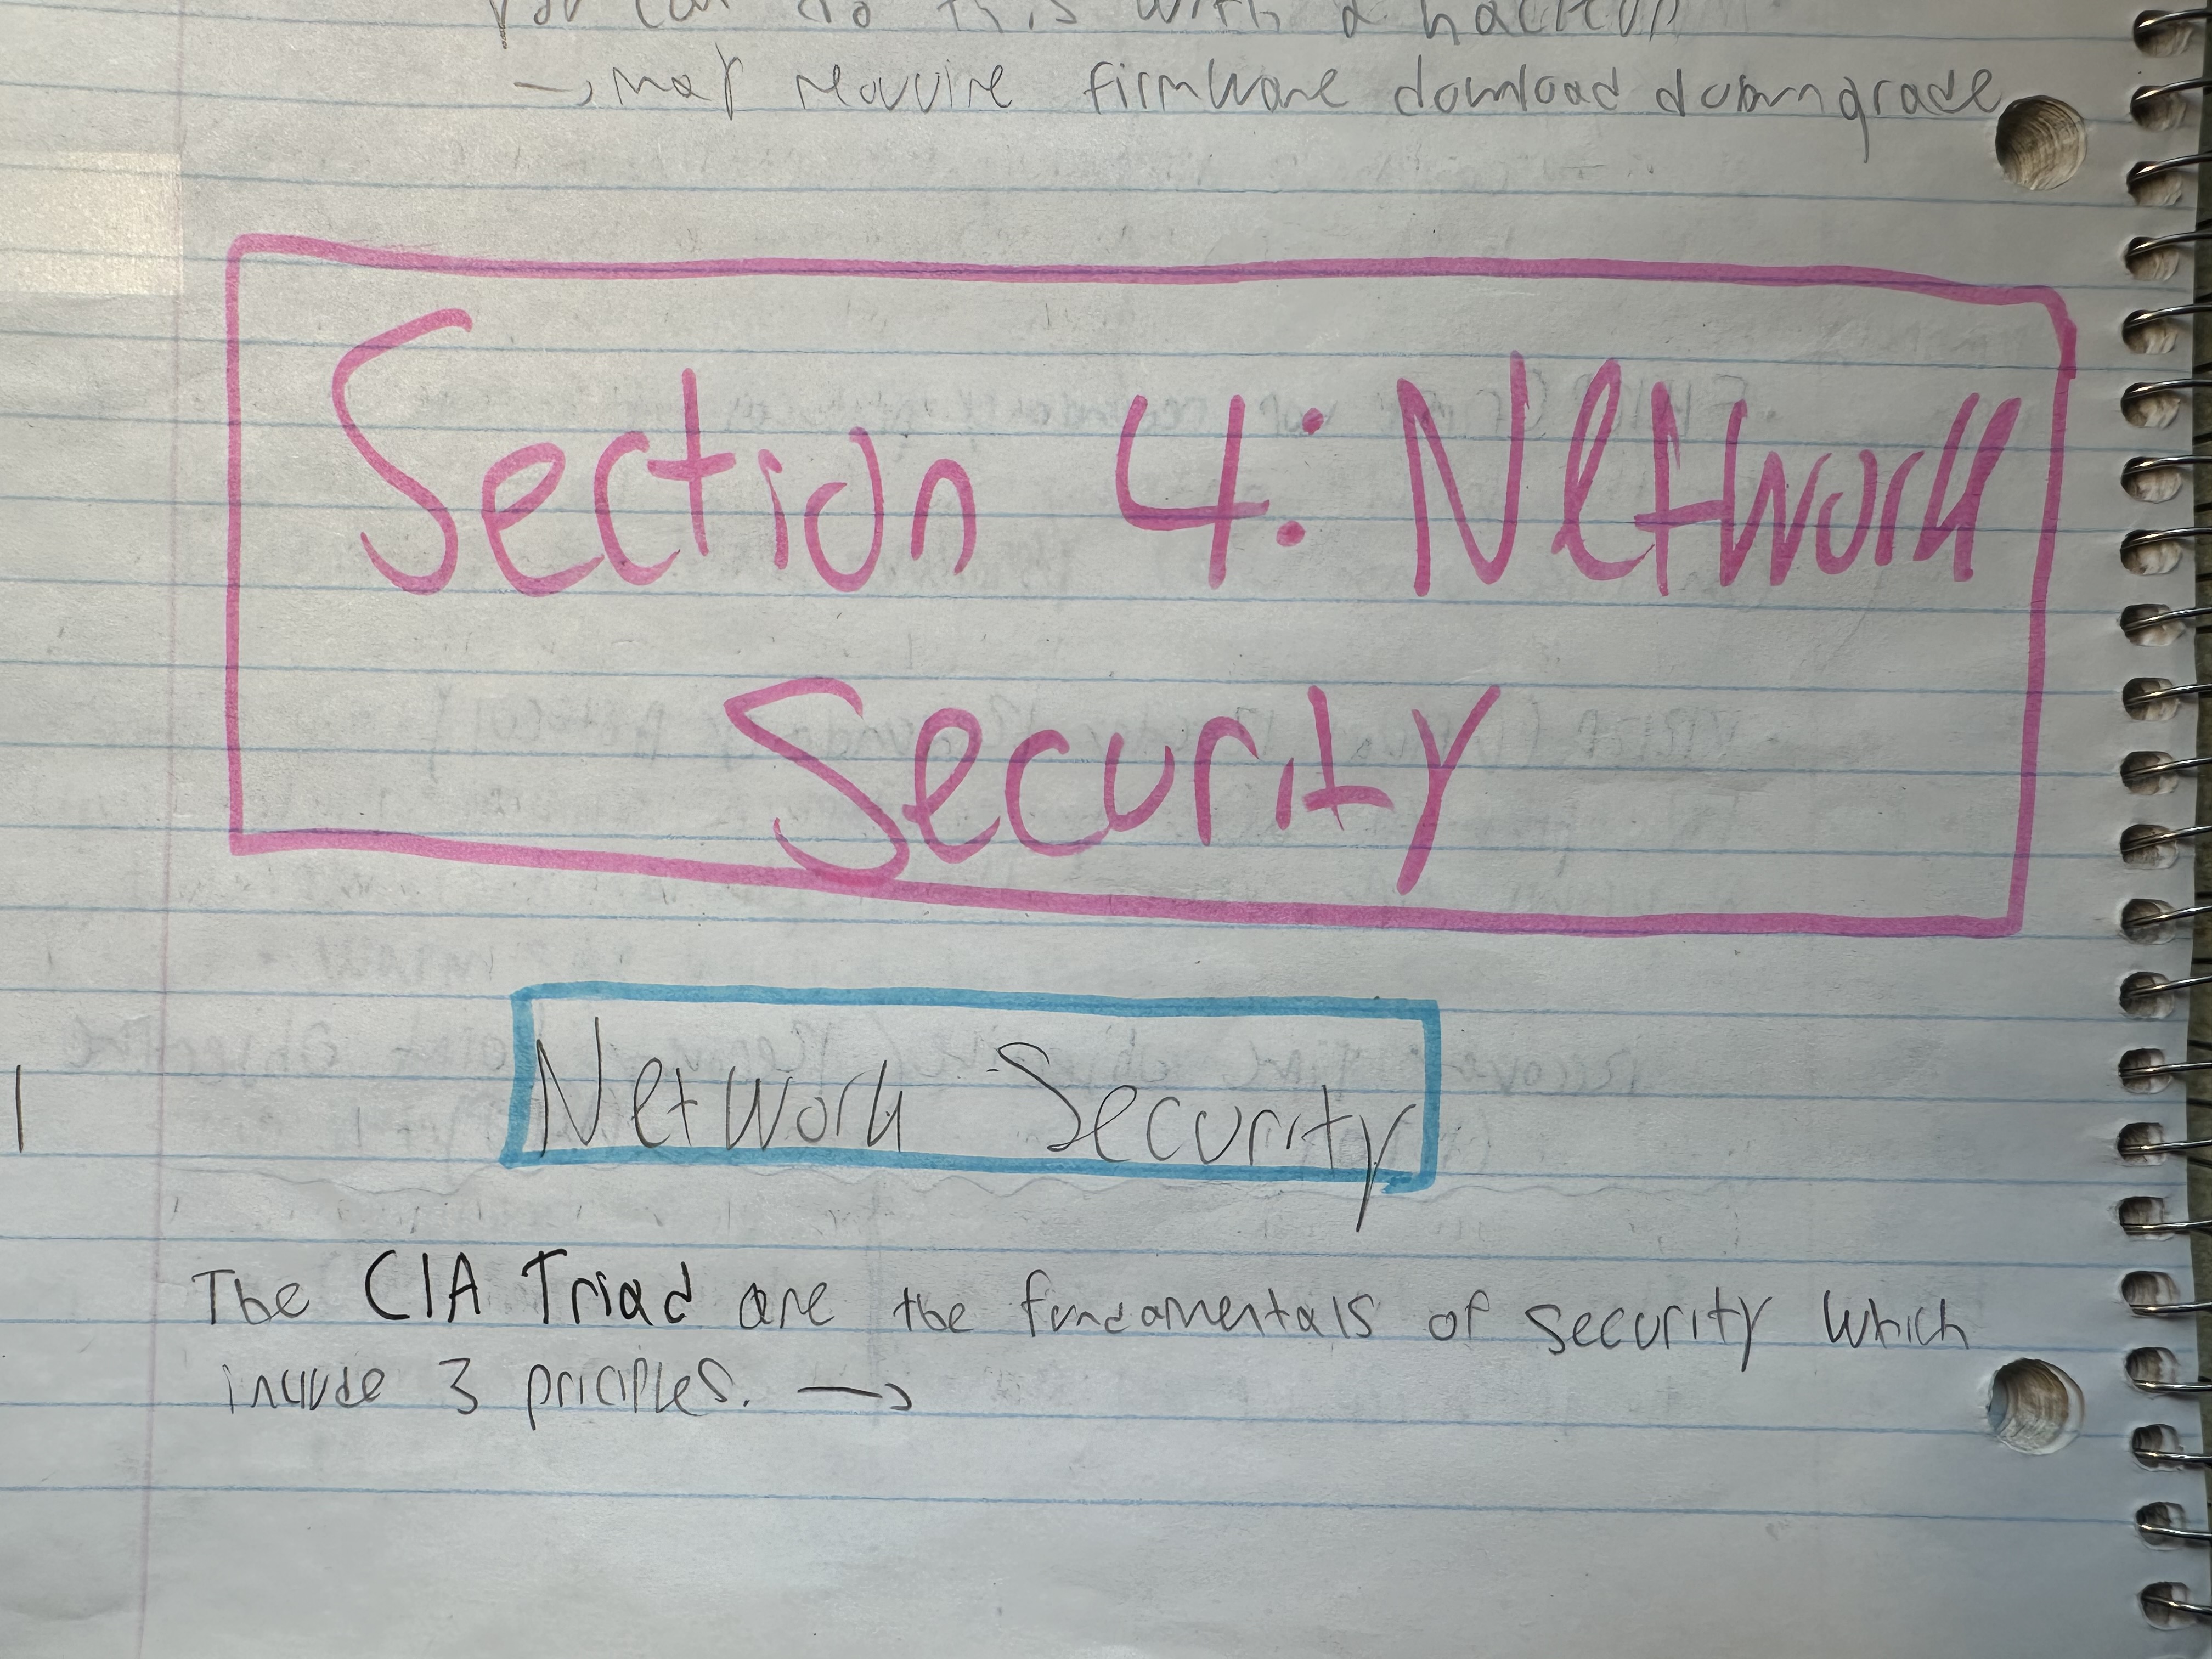 You can do this with a backup
→ may require firmware download downgrade
Section 4: Network
Security
Network Security
The CIA Triad are the fundamentals of security which
include 3 priciples. →